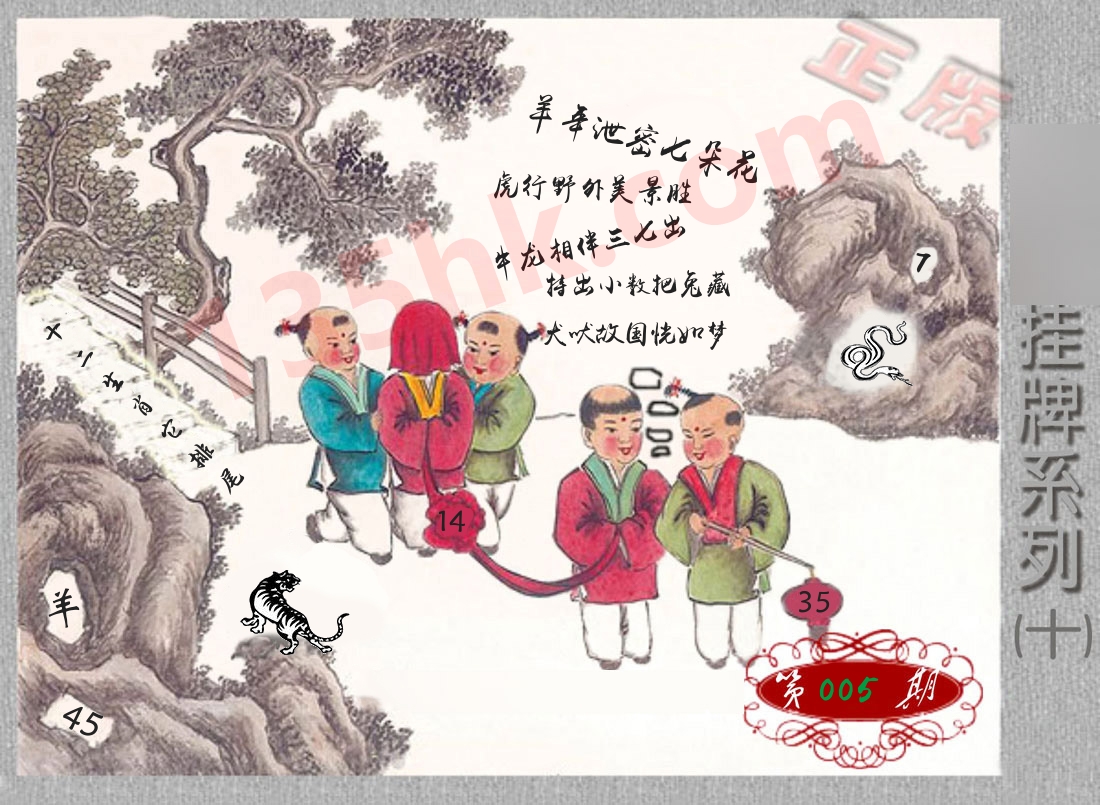 正版
羊年泄密七朵花
虎行野外美景胜
牛龙相伴三七出
持出小数把兔藏
犬吠故国恍如梦
135hk.com
7
十二生肖它排尾
14
35
羊
45
第005期
挂牌系列(十)